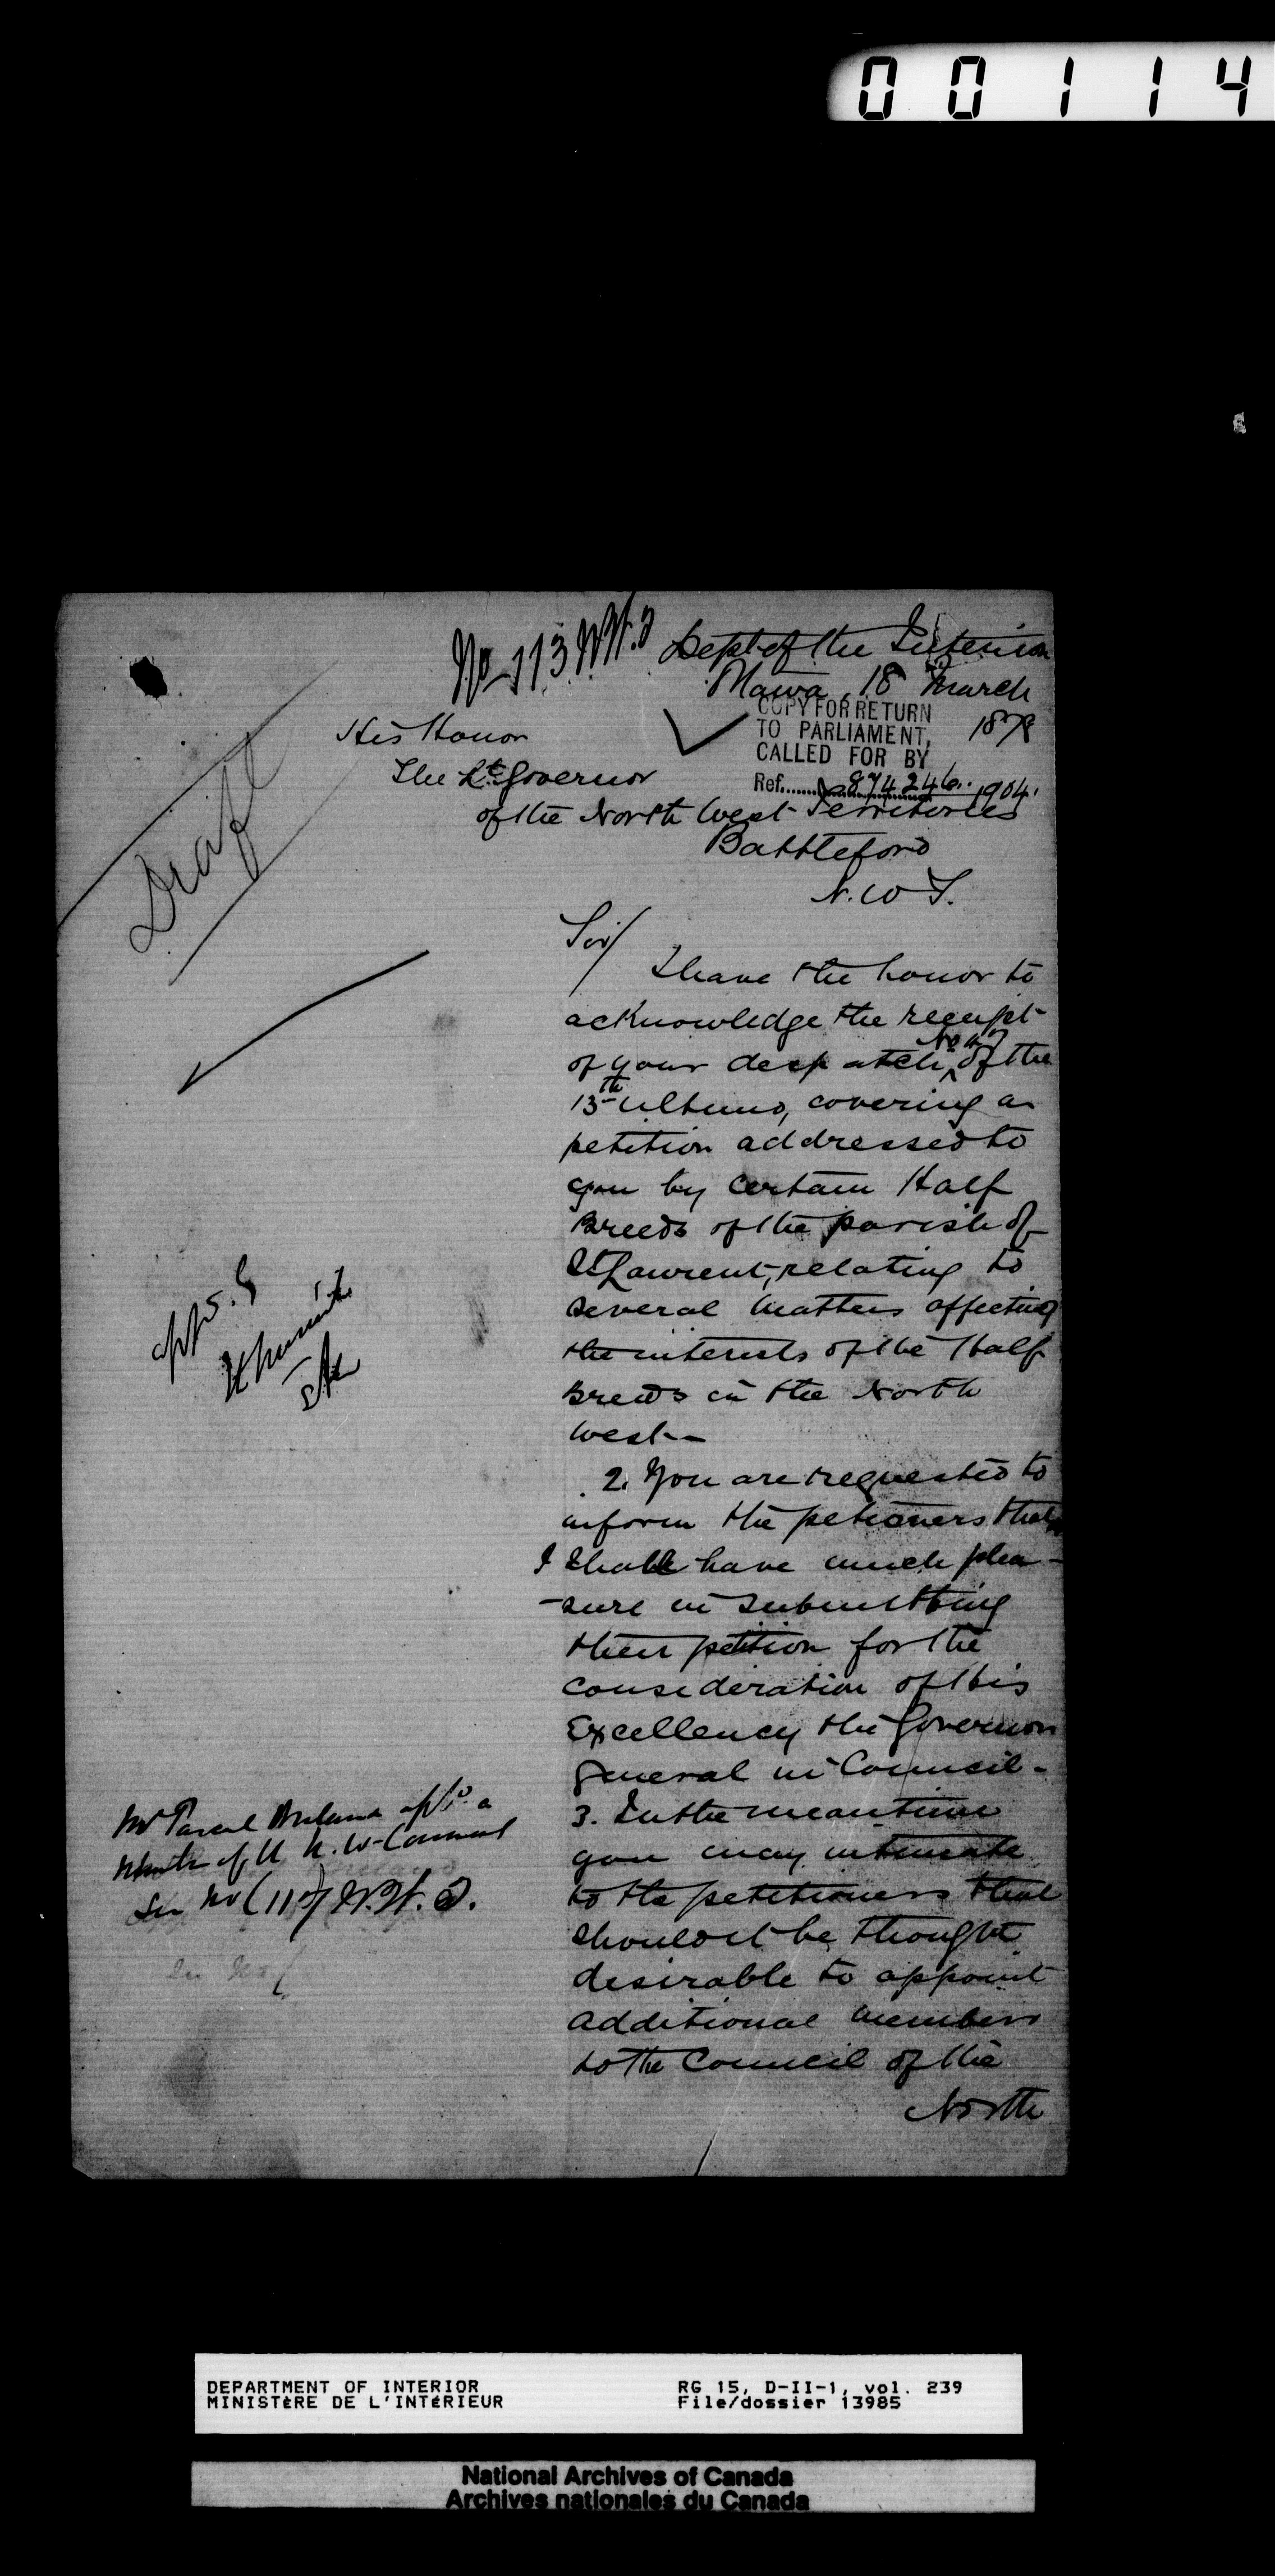 00114
No 113 N.W.T. Dept of the Interior
Ottawa, 18 March
1878
COPY FOR RETURN
TO PARLIAMENT,
CALLED FOR BY
Ref. 874246. 1904.
Draft
His Honor
The Lt Governor
of the North West Territories
Battleford
N.W.T.
Sir/
I have the honor to
acknowledge the receipt
of your despatch No of the
13th ultimo, covering a
petition addressed to
you by certain Half
Breeds of the parish of
St Laurent, relating to
several matters affecting
the interests of the Half
Breeds in the North
West—
2. You are requested to
inform the petioners that
I shall have much plea-
-sure in submitting
their petition for the
consideration of His
Excellency the Governor
General in Council-
3. In the meantime
you may intimate
to the petitioners that
should it be thought
desirable to appoint
additional members
to the Council of the
North
Mr Pascal Breland a
of N.W. Council
See No N.W.T.
DEPARTMENT OF INTERIOR
MINISTÈRE DE L'INTÉRIEUR
RG 15, D-II-1, vol. 239
File/dossier 13985
National Archives of Canada
Archives nationales du Canada